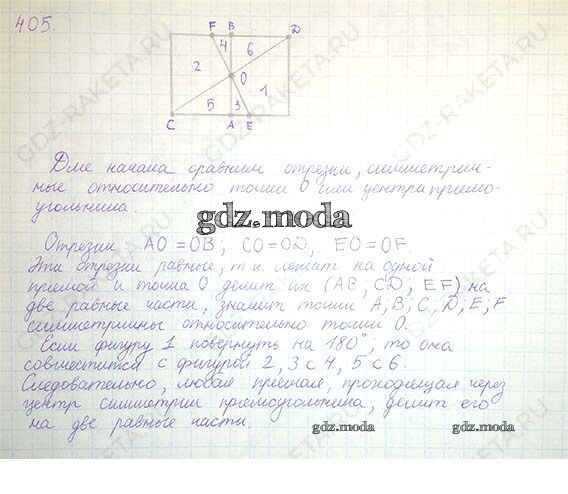 405.
F B D
4 6
2 O
1
5 3
C A E
Для начала сравним отрезки, симметрич-
ные относительно точки О или центра прямо-
угольника.
gdz.moda
Отрезки: AO = OB; CO = OD, EO = OF.
Эти отрезки равные, т.к. лежат на одной
прямой и точка О делит их (AB; CD; EF) на
две равные части, значит точки A, B, C, D, E, F
симметричны относительно точки О.
Если фигуру 1 повернуть на 180°, то она
совместится с фигурой 2, 3 с 4, 5 с 6.
Следовательно, любая прямая, проходящая через
центр симметрии прямоугольника, делит его
на две равные части.
gdz.moda gdz.moda
GDZ-RAKETA.RU